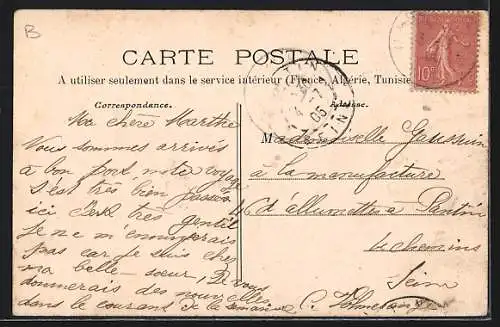 B
CARTE POSTALE
A utiliser seulement dans le service intérieur (France, Algérie, Tunisie
Correspondance.
Adresse.
Ma chère Marthe
Nous sommes arrivés
à bon port notre voyage
s'est très bien passé
ici c'est très gentil
je ne m'ennuierais
pas car je suis chez
ma belle-soeur, Je vous
donnerais des nouvelles
dans le courant de la semaine
Mademoiselle
à la manufacture
d'allumettes a Pantin
4 chemins
Seine
10c
05